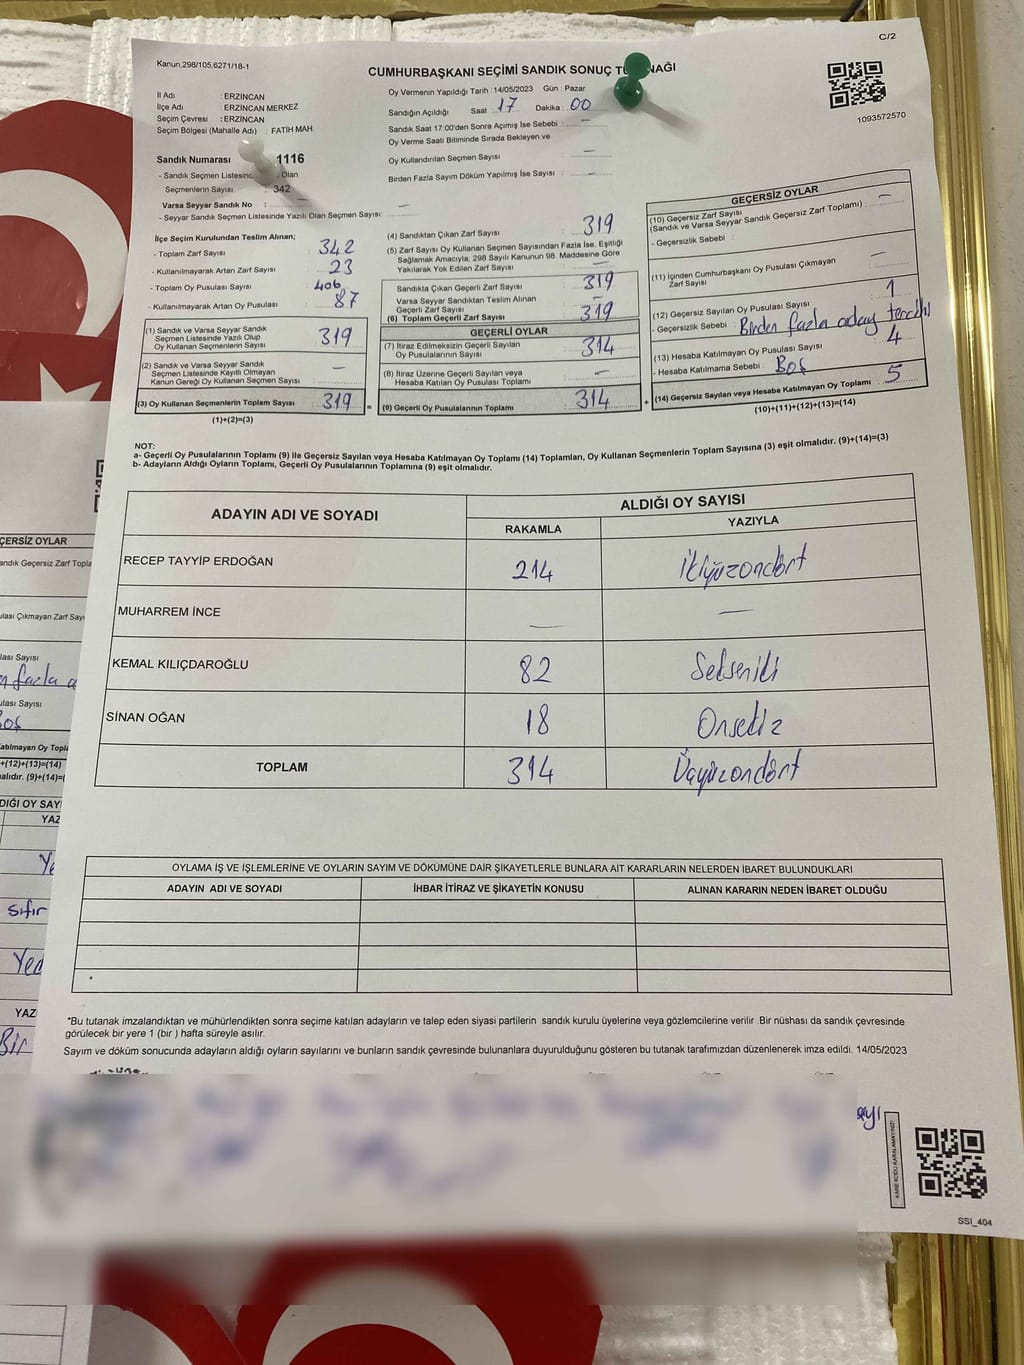 C/2
Kanun,298/105,6271/18-1
CUMHURBAŞKANI SEÇİMİ SANDIK SONUÇ
İl Adı : ERZİNCAN
İlçe Adı : ERZİNCAN MERKEZ
Seçim Çevresi : ERZİNCAN
Seçim Bölgesi (Mahalle Adı) : FATİH MAH
Sandık Numarası 1116
- Sandık Seçmen Listesinde Olan
Seçmenlerin Sayısı : 342
Varsa Seyyar Sandık No :
- Seyyar Sandık Seçmen Listesinde Yazılı Olan Seçmen Sayısı: —
Oy Vermenin Yapıldığı Tarih : 14/05/2023 Gün : Pazar
Sandığın Açıldığı Saat 17 Dakika : 00
Sandık Saat 17:00'den Sonra Açımış İse Sebebi : —
Oy Verme Saati Bitiminde Sırada Bekleyen ve
Oy Kullandırılan Seçmen Sayısı : —
Birden Fazla Sayım Döküm Yapılmış İse Sayısı : —
1093572570
İlçe Seçim Kurulundan Teslim Alınan;
- Toplam Zarf Sayısı : 342
- Kullanılmayarak Artan Zarf Sayısı : 23
- Toplam Oy Pusulası Sayısı : 406
- Kullanılmayarak Artan Oy Pusulası : 87
(1) Sandık ve Varsa Seyyar Sandık
Seçmen Listesinde Yazılı Olup
Oy Kullanan Seçmenlerin Sayısı : 319
(2) Sandık ve Varsa Seyyar Sandık
Seçmen Listesinde Kayıtlı Olmayan
Kanun Gereği Oy Kullanan Seçmen Sayısı : —
(3) Oy Kullanan Seçmenlerin Toplam Sayısı : 319 =
(1)+(2)=(3)
(4) Sandıktan Çıkan Zarf Sayısı : 319
(5) Zarf Sayısı Oy Kullanan Seçmen Sayısından Fazla İse, Eşitliği
Sağlamak Amacıyla, 298 Sayılı Kanunun 98. Maddesine Göre
Yakılarak Yok Edilen Zarf Sayısı : —
Sandıkta Çıkan Geçerli Zarf Sayısı : 319
Varsa Seyyar Sandıktan Teslim Alınan
Geçerli Zarf Sayısı : —
(6) Toplam Geçerli Zarf Sayısı : 319
GEÇERLİ OYLAR
(7) İtiraz Edilmeksizin Geçerli Sayılan
Oy Pusulalarının Sayısı : 314
(8) İtiraz Üzerine Geçerli Sayılan veya
Hesaba Katılan Oy Pusulası Toplamı : —
(9) Geçerli Oy Pusulalarının Toplamı : 314 +
GEÇERSİZ OYLAR
(10) Geçersiz Zarf Sayısı
(Sandık ve Varsa Seyyar Sandık Geçersiz Zarf Toplamı) : —
- Geçersizlik Sebebi :
(11) İçinden Cumhurbaşkanı Oy Pusulası Çıkmayan
Zarf Sayısı : —
(12) Geçersiz Sayılan Oy Pusulası Sayısı : 1
- Geçersizlik Sebebi : Birden fazla aday tercihi
(13) Hesaba Katılmayan Oy Pusulası Sayısı : 4
- Hesaba Katılmama Sebebi : Boş
(14) Geçersiz Sayılan veya Hesaba Katılmayan Oy Toplamı : 5
(10)+(11)+(12)+(13)=(14)
NOT:
a- Geçerli Oy Pusulalarının Toplamı (9) ile Geçersiz Sayılan veya Hesaba Katılmayan Oy Toplamı (14) Toplamları, Oy Kullanan Seçmenlerin Toplam Sayısına (3) eşit olmalıdır. (9)+(14)=(3)
b- Adayların Aldığı Oyların Toplamı, Geçerli Oy Pusulalarının Toplamına (9) eşit olmalıdır.
ADAYIN ADI VE SOYADI
ALDIĞI OY SAYISI
RAKAMLA YAZIYLA
RECEP TAYYİP ERDOĞAN 214 İkiyüzondört
MUHARREM İNCE — —
KEMAL KILIÇDAROĞLU 82 Sekseniki
SİNAN OĞAN 18 Onsekiz
TOPLAM 314 Üçyüzondört
OYLAMA İŞ VE İŞLEMLERİNE VE OYLARIN SAYIM VE DÖKÜMÜNE DAİR ŞİKAYETLERLE BUNLARA AİT KARARLARIN NELERDEN İBARET BULUNDUKLARI
ADAYIN ADI VE SOYADI İHBAR İTİRAZ VE ŞİKAYETİN KONUSU ALINAN KARARIN NEDEN İBARET OLDUĞU
*Bu tutanak imzalandıktan ve mühürlendikten sonra seçime katılan adayların ve talep eden siyasi partilerin sandık kurulu üyelerine veya gözlemcilerine verilir .Bir nüshası da sandık çevresinde
görülecek bir yere 1 (bir ) hafta süreyle asılır.
Sayım ve döküm sonucunda adayların aldığı oyların sayılarını ve bunların sandık çevresinde bulunanlara duyurulduğunu gösteren bu tutanak tarafımızdan düzenlenerek imza edildi. 14/05/2023
KARE KODU KARALAMAYINIZ!
SSI_404
ÇERSİZ OYLAR
andık Geçersiz Zarf Topla
ulası Çıkmayan Zarf Sayı
lası Sayısı
fazla a
ulası Sayısı
Boş
atılmayan Oy Topla
+(12)+(13)=(14)
alıdır. (9)+(14)=(
DIĞI OY SAY
YAZ
sıfır
Yed
YAZ
Bir